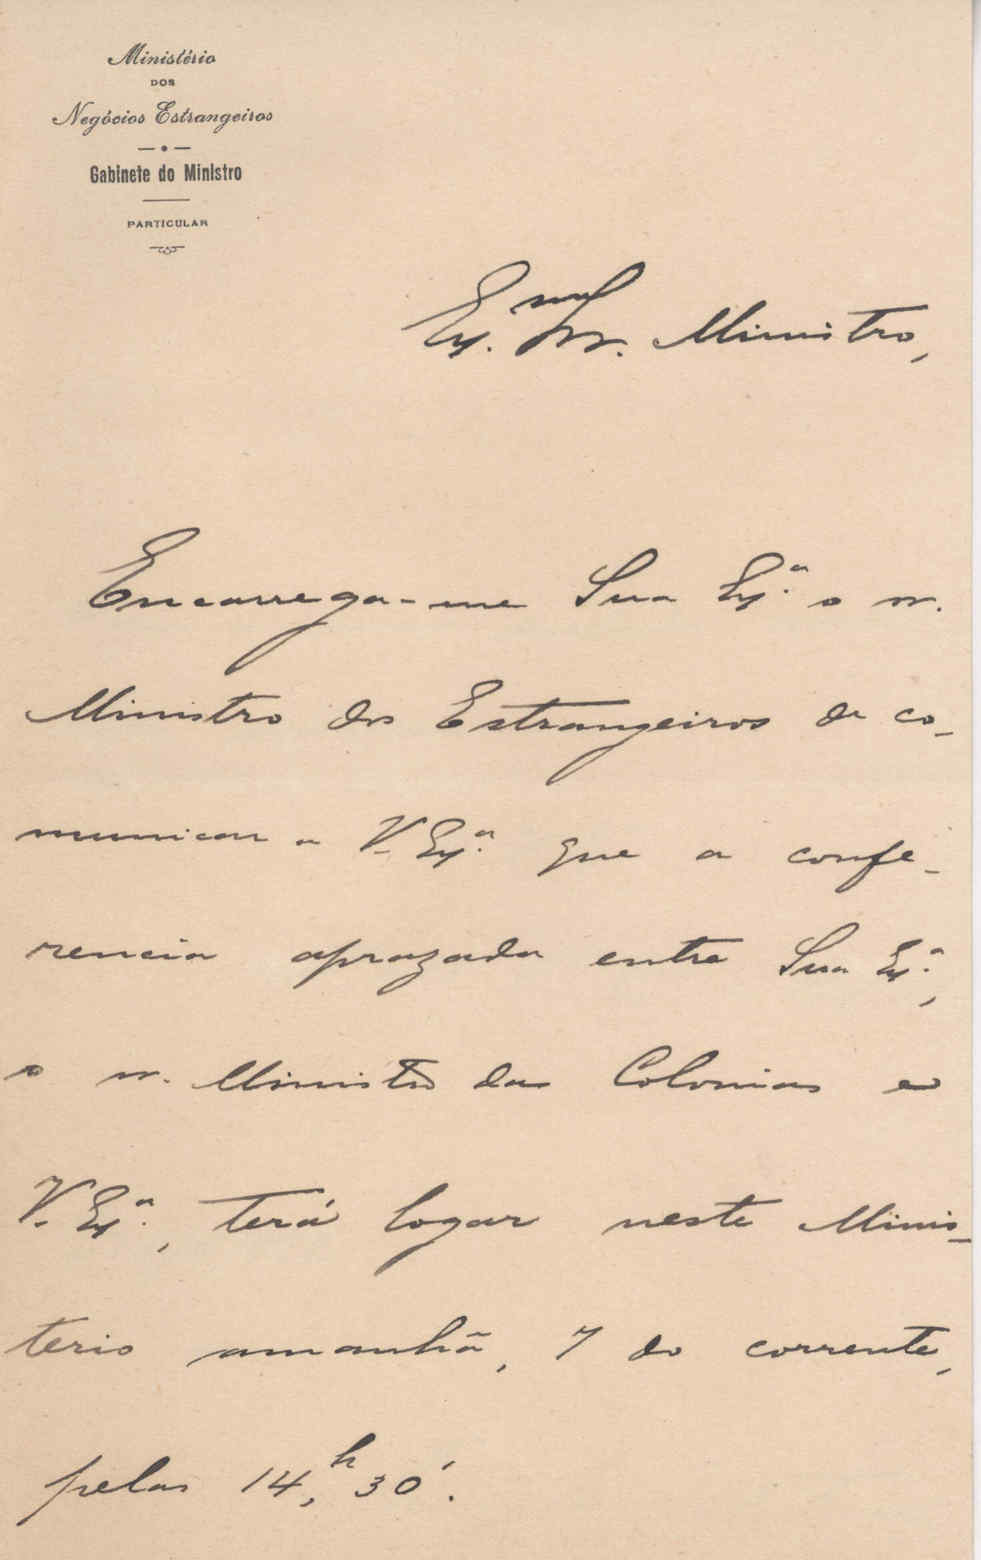 Ministério
DOS
Negócios Estrangeiros
Gabinete do Ministro
PARTICULAR
Ex.mo Sr. Ministro,
Encarrega-me Sua Ex.a o sr.
Ministro dos Estrangeiros de co-
municar a V. Ex.a que a confe-
rencia aprazada entre Sua Ex.a,
o sr. Ministro das Colonias e
V. Ex.a, terá logar neste Minis-
terio amanhã, 7 do corrente,
pelas 14,h 30'.